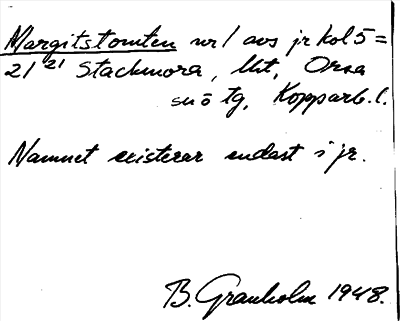 Margitstomten nr 1 avs jr kol 5 =
21 21 Stackmora, lht, Orsa
sn ö tg, Kopparb. l.
Namnet existerar endast i jr.
B. Granholm 1948.